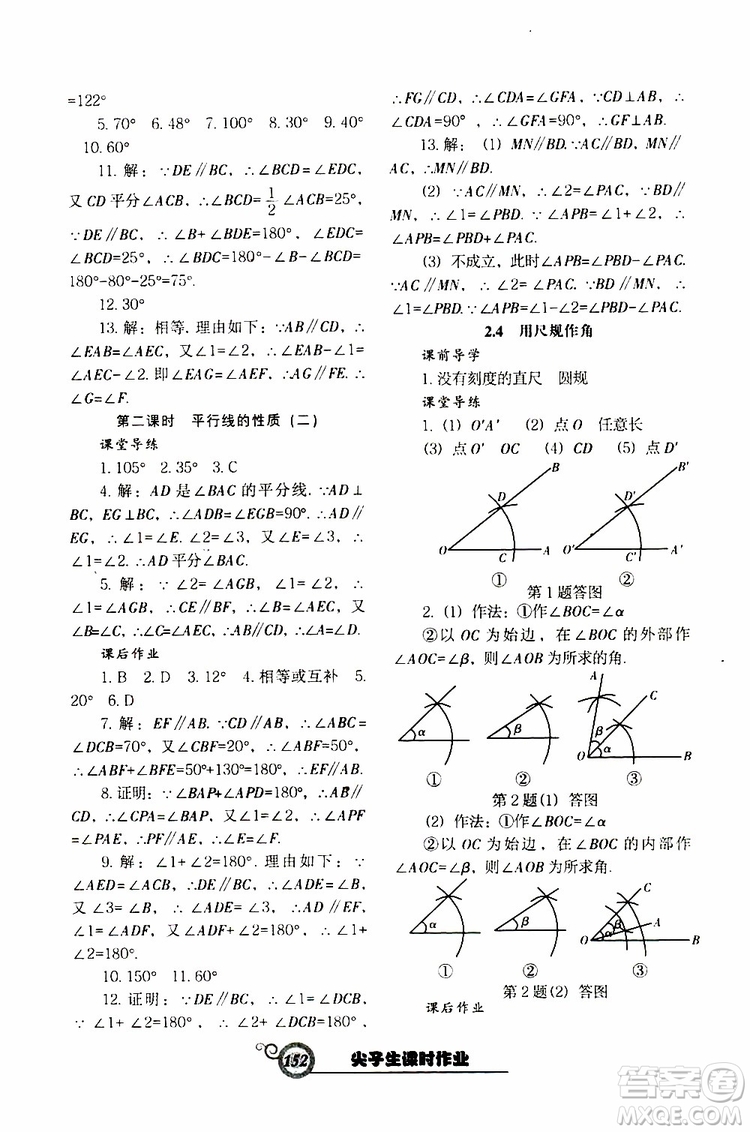 =122°
5.70° 6.48° 7.110° 8.30° 9.40°
10.60°
11.解:∵DE∥BC,∴∠BCD=∠EDC,
又CD平分∠ACB,∴∠BCD=1/2∠ACB=25°,
∵DE∥BC,∴∠B+∠BDE=180°,∠EDC=
∠BCD=25°,∴∠BDC=∠BDE-∠EDC=
180°-80°-25°=75°.
12.30°
13.解:相等.理由如下:∵AB∥CD,∴
∠EAB=∠AEC,又∠1=∠2,∴∠EAB-∠1=
∠AEC-∠2,即∠GAE=∠FEA,∴AG∥FE.∴
∠G=∠F.
第二课时 平行线的性质(二)
课堂导练
1.105° 2.35° 3.C
4.解:AD是∠BAC的平分线.∵AD⊥
BC,EG⊥BC,∴∠ADB=∠EGB=90°.∴AD∥
EG,∴∠1=∠E.∠2=∠3,又∵∠E=∠3,∴
∠1=∠2.∴AD平分∠BAC.
5.解:∵∠2=∠AGB,∠1=∠2,∴
∠1=∠AGB,∴CE∥BF,∴∠B=∠AEC,又
∠B=∠C,∴∠C=∠AEC,∴AB∥CD,∴∠A=∠D.
课后作业
1.B 2.D 3.12° 4.相等或互补 5.
20° 6.D
7.解:EF∥AB.∵CD∥AB,∴∠ABC=
∠DCB=70°,又∠CBF=20°,∴∠ABF=50°,
∴∠ABF+∠BFE=50°+130°=180°,∴EF∥AB.
8.证明:∵∠BAP+∠APD=180°,∴AB∥
CD,∴∠CPA=∠BAP,又∵∠1=∠2,∴∠APF
=∠PAE,∴PF∥AE,∴∠E=∠F.
9.解:∠1+∠2=180°.理由如下:∵
∠AED=∠ACB,∴DE∥BC,∴∠ADE=∠B,又
∠3=∠B,∴∠ADE=∠3,∴AD∥EF,∴
∠1=∠ADF,又∠ADF+∠2=180°,∴
∠1+∠2=180°.
10.150° 11.60°
12.证明:∵DE∥BC,∴∠1=∠DCB,
∵∠1+∠2=180°,∴∠2+∠DCB=180°,
∴FG∥CD,∴∠CDA=∠GFA,∵CD⊥AB,∴
∠CDA=90°,∴∠GFA=90°,∴GF⊥AB.
13.解:(1)MN∥BD.∵AC∥BD,MN∥
AC,∴MN∥BD.
(2)∵AC∥MN,∴∠2=∠PAC.∵BD∥
MN,∴∠1=∠PBD.∵∠APB=∠1+∠2,∴
∠APB=∠PBD+∠PAC.
(3)不成立,此时∠APB=∠PBD-∠PAC.
∵AC∥MN,∴∠2=∠PAC.∵BD∥MN,∴
∠1=∠PBD.∵∠APB=∠1-∠2,∴∠APB=∠PBD-∠PAC.
2.4 用尺规作角
课前导学
1.没有刻度的直尺 圆规
课堂导练
1.(1)O'A' (2)点O 任意长
(3)点O' OC (4)CD (5)点D'
B D O C A B' D' O' C' A'
① ②
第1题答图
2.(1)作法:①作∠BOC=∠α
②以OC为始边,在∠BOC的外部作
∠AOC=∠β,则∠AOB为所求的角.
α β A C β α O B
① ② ③
第2题(1) 答图
(2)作法:①作∠BOC=∠α
②以OC为始边,在∠BOC的内部作
∠AOC=∠β,则∠AOB为所求角.
α β C A α β O B
① ② ③
第2题(2) 答图
课后作业
152 尖子生课时作业
答案卷
MXQE.COM